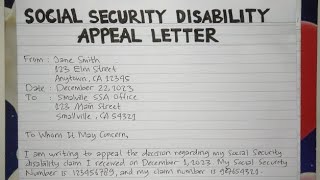 SOCIAL SECURITY DISABILITY
APPEAL LETTER
From : Jane Smith
123 Elm Street
Anytown, CA 12345
Date : December 22, 2023
To : Smallville SSA Office
123 Main Street
Smallville, CA 54321
To Whom It May Concern,
I am writing to appeal the decision regarding my Social Security
disability claim I received on December 1, 2023. My Social Security
Number is 123456789, and my claim number is 987654321.